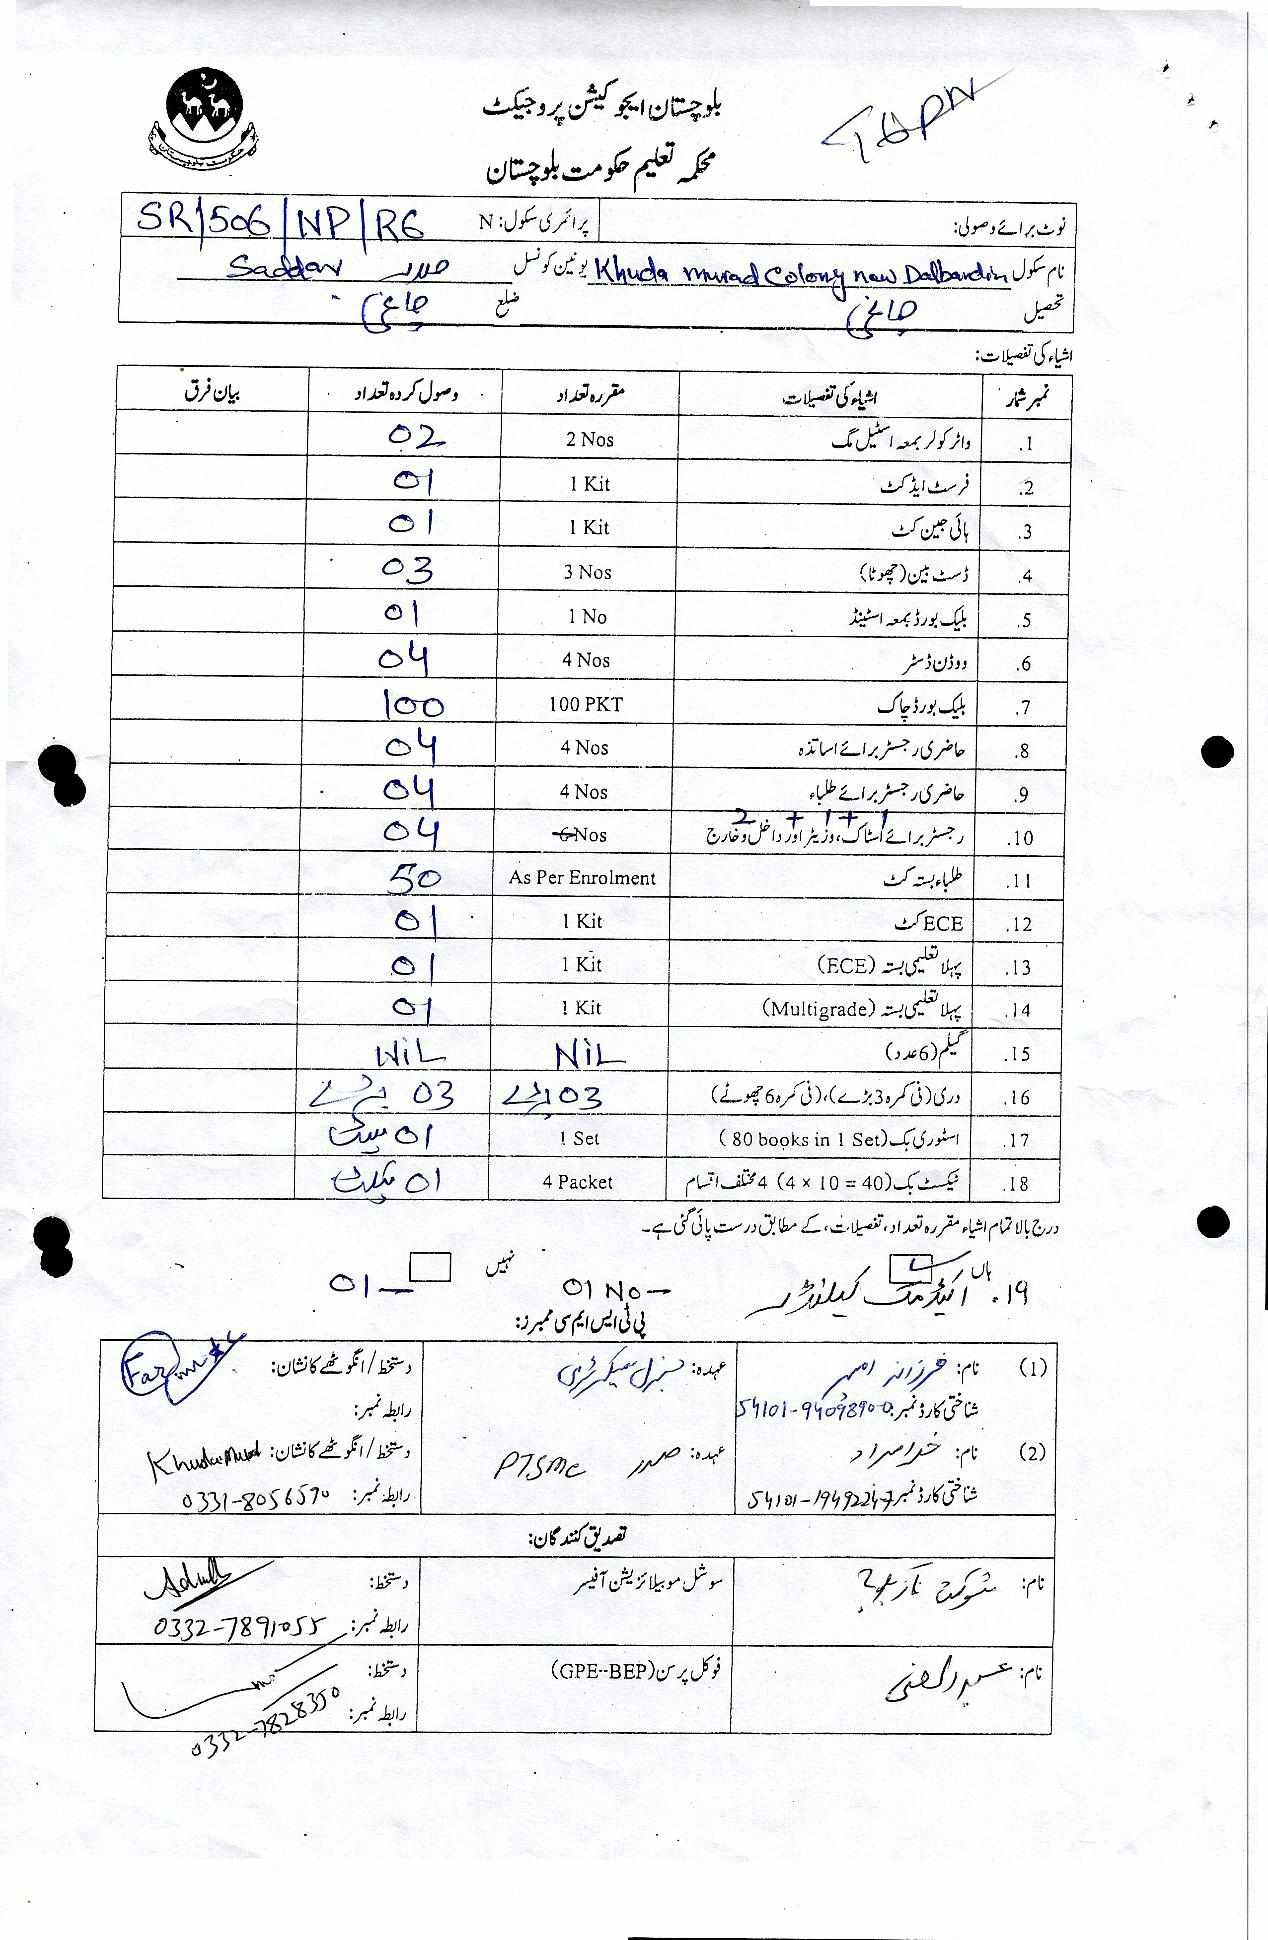 بلوچستان ایجوکیشن پروجیکٹ
محکمہ تعلیم حکومت بلوچستان
نوٹ برائے وصولی: پرائمری سکول: N SR/506/NP/R6
نام سکول Khuda murad Colony new Dalbandin یونین کونسل صدر Saddar
تحصیل چاغی ضلع چاغی
اشیاء کی تفصیلات:
نمبر شمار اشیاء کی تفصیلات مقررہ تعداد وصول کردہ تعداد بیان فرق
.1 واٹر کولر بمعہ اسٹیل مگ 2 Nos 02
.2 فرسٹ ایڈ کٹ 1 Kit 01
.3 ہائی جین کٹ 1 Kit 01
.4 ڈسٹ بین (چھوٹا) 3 Nos 03
.5 بلیک بورڈ بمعہ اسٹینڈ 1 No 01
.6 ووڈن ڈسٹر 4 Nos 04
.7 بلیک بورڈ چاک 100 PKT 100
.8 حاضری رجسٹر برائے اساتذہ 4 Nos 04
.9 حاضری رجسٹر برائے طلباء 4 Nos 04
2 + 1 + 1
.10 رجسٹر برائے اسٹاک، وزیٹر اور داخل و خارج 6 Nos 04
.11 طلباء بستہ کٹ As Per Enrolment 50
.12 ECE کٹ 1 Kit 01
.13 پہلا تعلیمی بستہ (ECE) 1 Kit 01
.14 پہلا تعلیمی بستہ (Multigrade) 1 Kit 01
.15 گیلم (6 عدد) NIL NIL
.16 دری (فی کمرہ 3 بڑے)، (فی کمرہ 6 چھوٹے) 03 بڑے 03 بڑے
.17 اسٹوری بک (80 books in 1 Set) 1 Set 01 سیٹ
.18 ٹیکسٹ بک (4 × 10 = 40) 4 مختلف اقسام 4 Packet 01 پیکٹ
درج بالا تمام اشیاء مقررہ تعداد، تفصیلات، کے مطابق درست پائی گئی ہے۔
ہاں نہیں
۱۹. اکیڈمک کیلنڈر 01 No 01
پی ٹی ایس ایم سی ممبرز:
(1) نام: فرزانہ عہدہ: جنرل سیکرٹری دستخط/انگوٹھے کا نشان:
شناختی کارڈ نمبر: رابطہ نمبر:
(2) نام: خدا مراد عہدہ: صدر PTSMC دستخط/انگوٹھے کا نشان: Khuda Murad
شناختی کارڈ نمبر 54101-1949224-7 رابطہ نمبر: 0331-8056570
تصدیق کنندگان:
نام: شوکت سوشل موبیلائزیشن آفیسر دستخط:
رابطہ نمبر: 0332-7891055
نام: فوکل پرسن (GPE--BEP) دستخط:
رابطہ نمبر: 0332-7828350